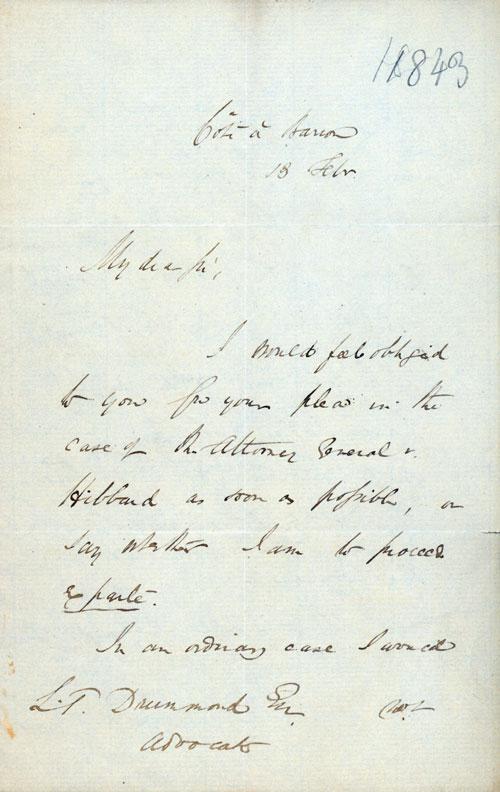 1843
Côté à Barron
18 Feb.
My dear Sir,
I would feel obliged
to you for your plea in the
case of the Attorney General v.
Hibbard as soon as possible, or
say whether I am to proceed
Ex parte.
In an ordinary case I would
L. T. Drummond Esq. not
Advocate